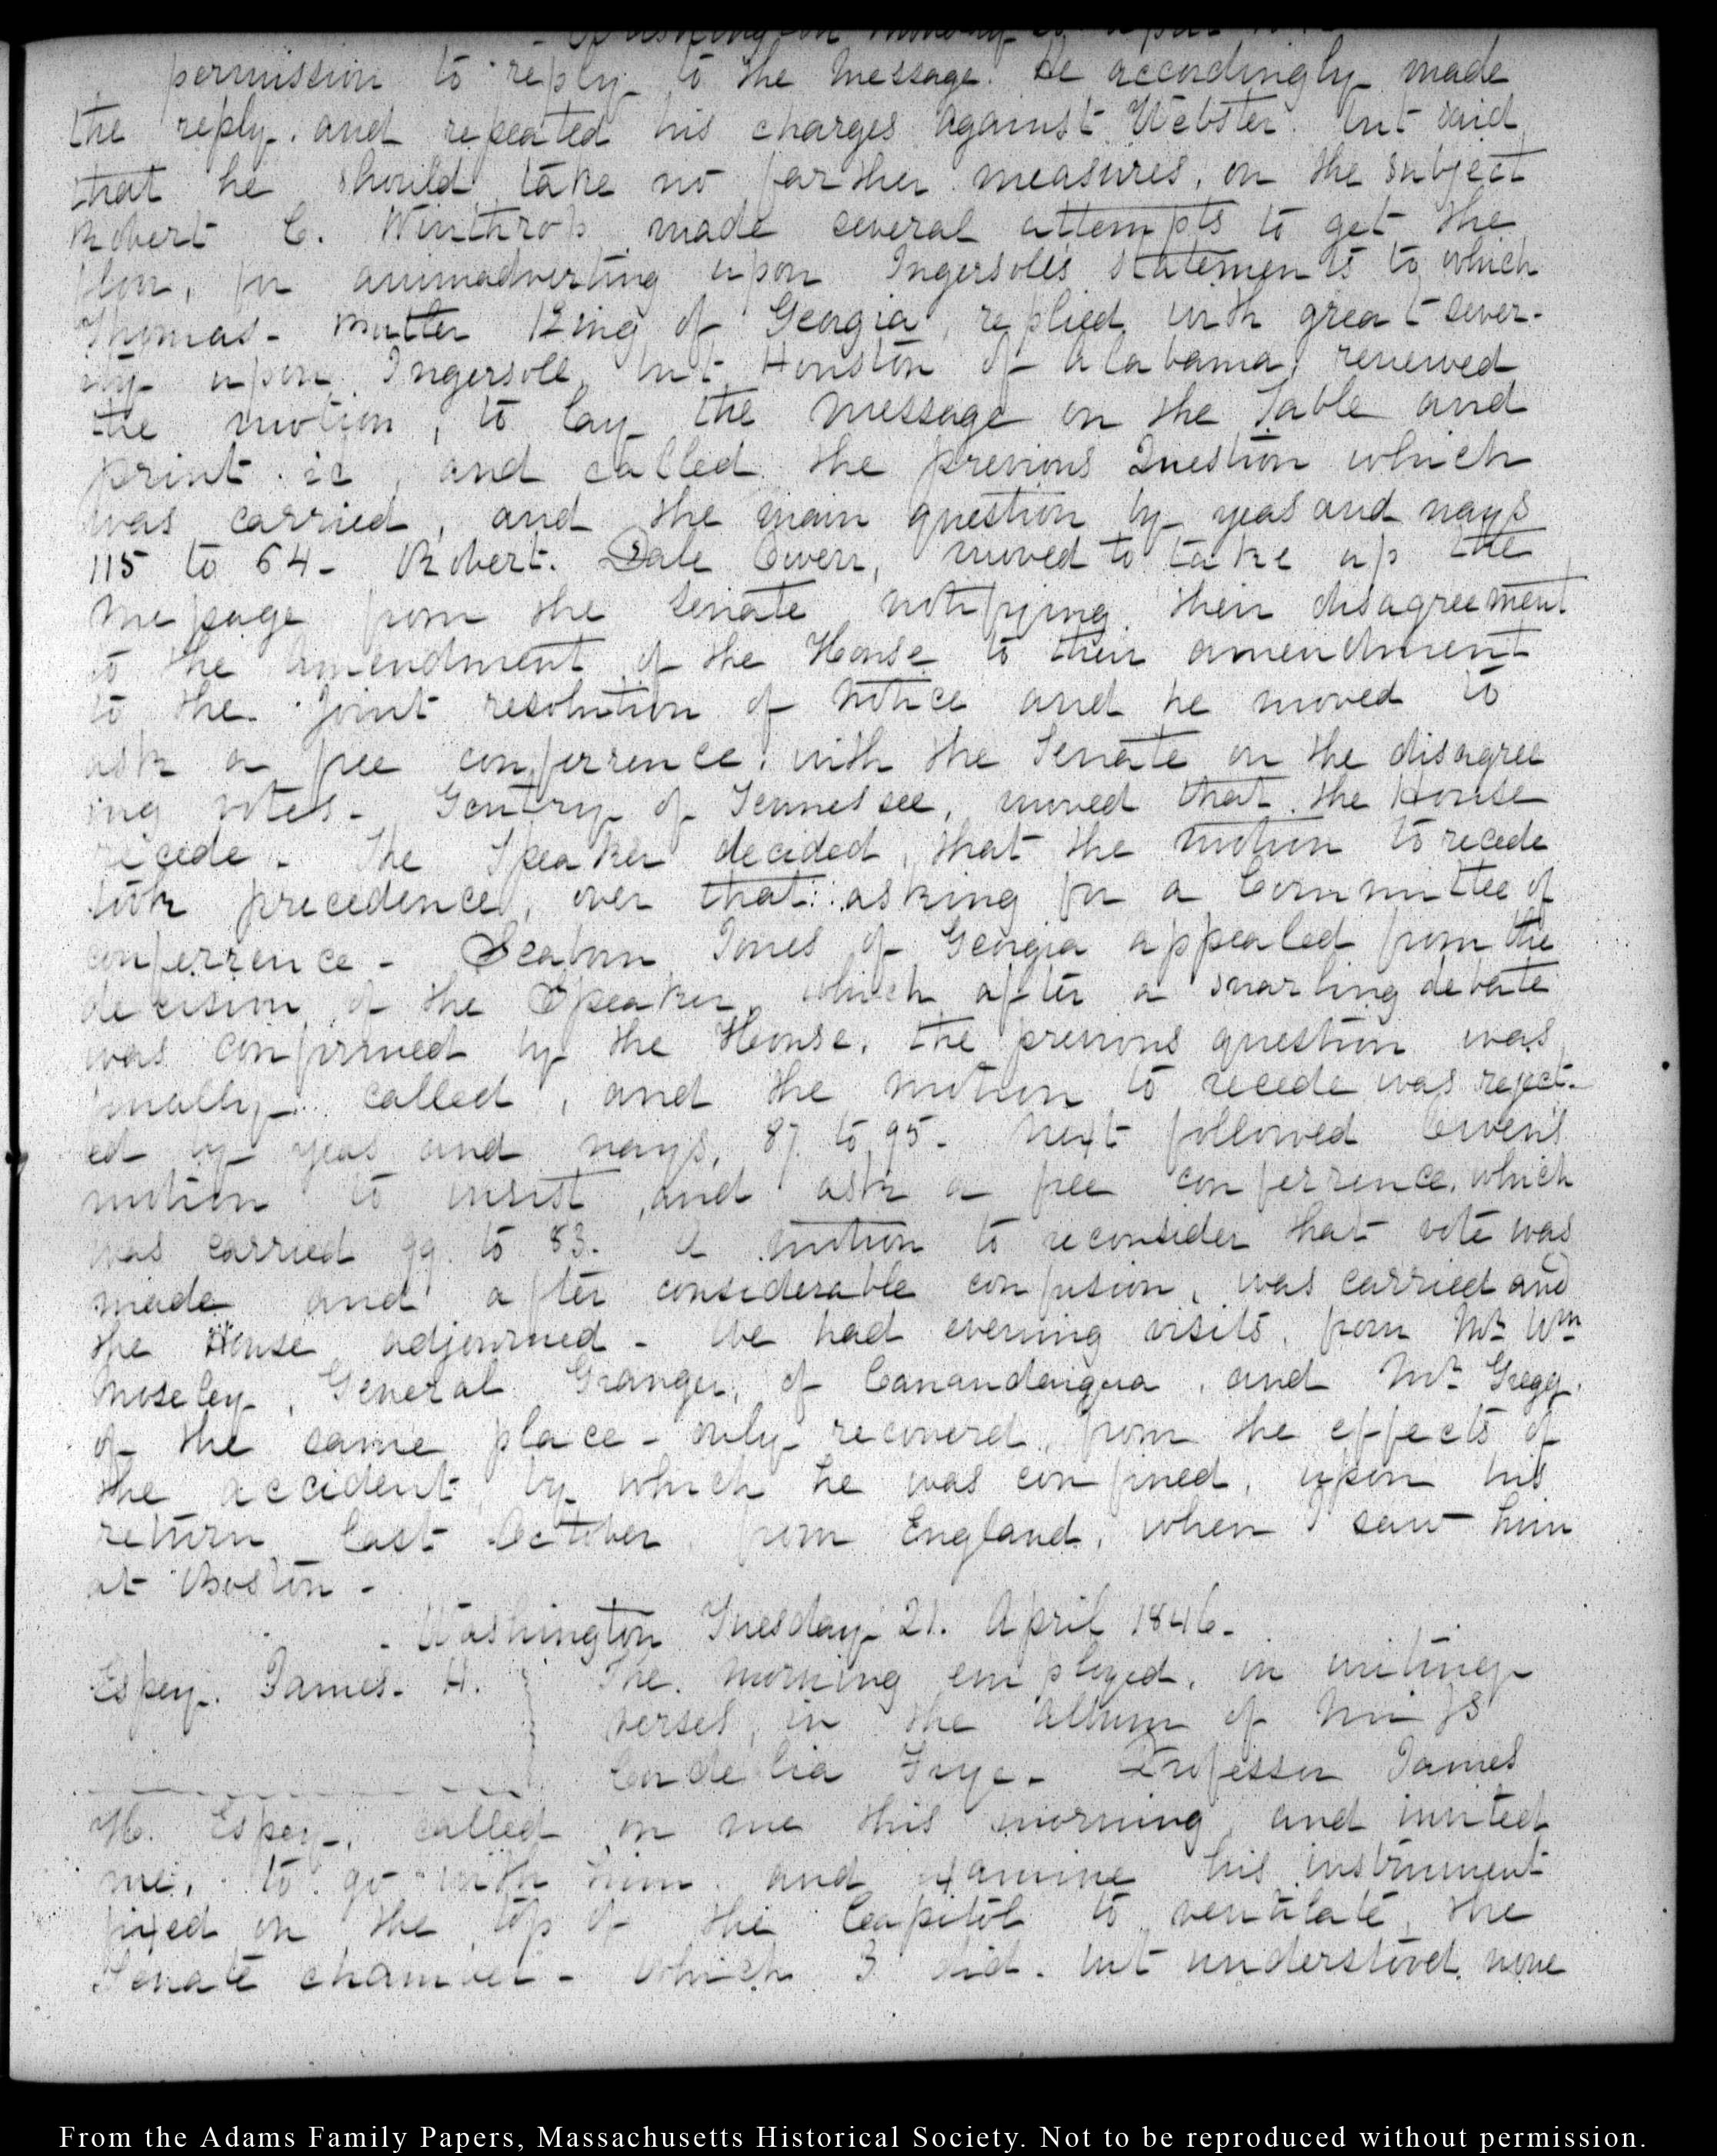 Washington Monday 20 April 1846
permission to reply to the Message. He accordingly made
the reply. and repeated his charges against Webster. but said
that he should take no farther measures, on the subject
Robert C. Winthrop made several attempts to get the
floor, for animadverting upon Ingersoll's statements to which
Thomas- Butler King of Georgia, replied with great sever-
ity upon Ingersoll, but Houston of Alabama, renewed
the motion, to lay the Message on the Table and
print it, and called the previous Question which
was carried, and the main question by yeas and nays
115 to 64- Robert. Dale Owen, moved to take up the
Message from the Senate notifying their disagreement
to the Amendment of the House to their amendment
to the Joint resolution of Notice and he moved to
ask a free conferrence. with the Senate on the disagree
ing votes- Gentry of Tennessee, moved that the House
recede. The Speaker decided, that the motion to recede
took precedence, over that asking for a Committee of
conferrence- Seaborn Jones of Georgia appealed from the
decision of the Speaker, which after a snarling debate
was confirmed by the House. the previous question was
finally called, and the motion to recede was reject-
ed by yeas and nays, 87 to 95- Next followed Owen's
motion to insist, and ask a free conferrence, which
was carried 99. to 83. A motion to reconsider that vote was
made and after considerable confusion, was carried and
the House adjourned- We had evening visits, from Mr. Wm
Moseley, General Granger, of Canandaigua, and Mr. Gregg.
of the same place- only recoverd, from the effects of
the accident, by which he was confined, upon his
return last October from England, when I saw him
at Boston-
- Washington Tuesday 21. April 1846-
Espey. James. H.
The morning employed, in writing
verses, in the Album of Miss
Cordelia Frye- Professor James
H. Espey, called on me this morning, and invited
me, to go with him and examine his instrument
fixed on the top of the Capitol to ventilate, the
Senate chamber- Which I did. but understood none
From the Adams Family Papers, Massachusetts Historical Society. Not to be reproduced without permission.